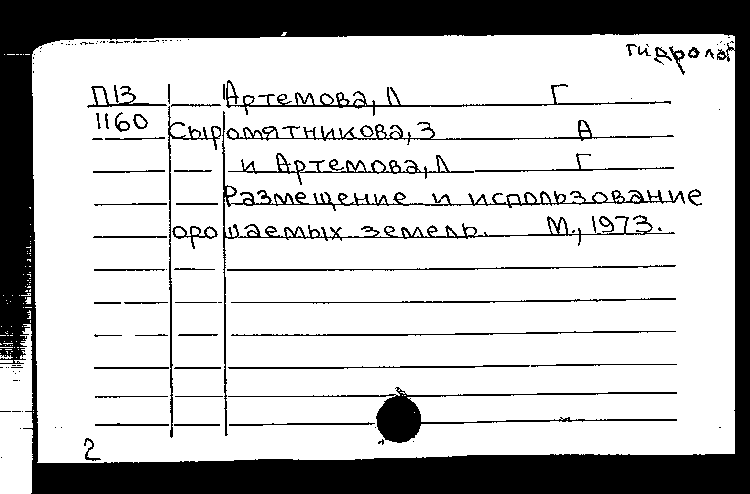 гидролог
П13 Артемова, Л Г
1160 Сыромятникова, З А
и Артемова, Л Г
Размещение и использование
орошаемых земель. М., 1973.
2